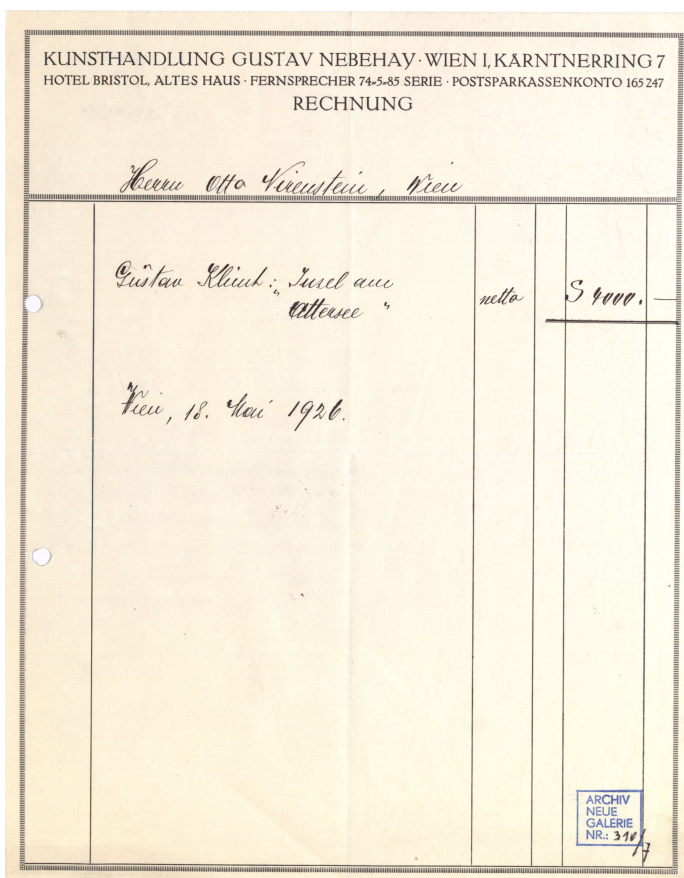 KUNSTHANDLUNG GUSTAV NEBEHAY · WIEN I, KÄRNTNERRING 7
HOTEL BRISTOL, ALTES HAUS · FERNSPRECHER 74-5-85 SERIE · POSTSPARKASSENKONTO 165 247
RECHNUNG
Herrn Otto Nirenstein, Wien
Gustav Klimt: „Insel am netto S 4000.—
Attersee"
Wien, 18. Mai 1926.
ARCHIV
NEUE
GALERIE
NR.: 310/7